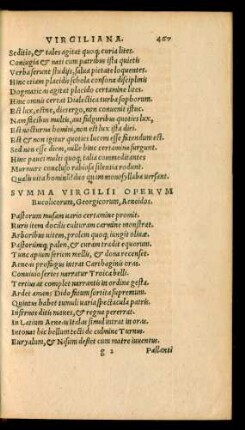 VIRGILIANA. 467
Seditio, & tales agitat quoq; curia lites.
Coniugia & nati cum patribus ista quieti
Verba serunt studijs, salua pietate loquentes.
Hinc etiam placidis schola consona disciplinis
Dogmaticas agitat placido certamine lites.
Hinc omnis certat Dialectica turba sophorum.
Est lux, est ne, dies ergo, non conuenit istuc.
Nam facibus multis, aut fulguribus quoties lux
Est nocturna homini, non est lux ista diei.
Est & non igitur quoties lucem esse fatendum est.
Sed non esse diem, mille hinc certamina surgunt.
Hinc pauci multi quoq; talia commodantes
Murmure concluso rabiosa silentia rodunt.
Qualis vita hominum quam monosyllaba versant.
SVMMA VIRGILII OPERVM
Bucolicorum, Georgicorum, Aeneidos.
Pastorum musam uario certamine promit.
Ruris item docilis culturam carmine monstrat.
Arboribus uitem, prolem quoq; iungit oliuæ.
Pastorumq; palen, & curam tradit equorum.
Tunc apium seriem mellis, & dona recenset.
Aeneas profugus intrat Carthaginis oras.
Conuiuio series narratur Troica belli.
Tertius at complet narrantis in ordine gesta.
Ardet amans Dido ficum sortita supremum.
Quintus habet tumuli uaria spectacula patris.
Infernos ditis manes, & regna pererrat.
In Latium Aeneas Italas simul intrat in oras.
Intonat hic bellum tecti de culmine Turnus.
Euryalum, & Nisum deflet cum matre iuuentus.
g 2 Pallanti